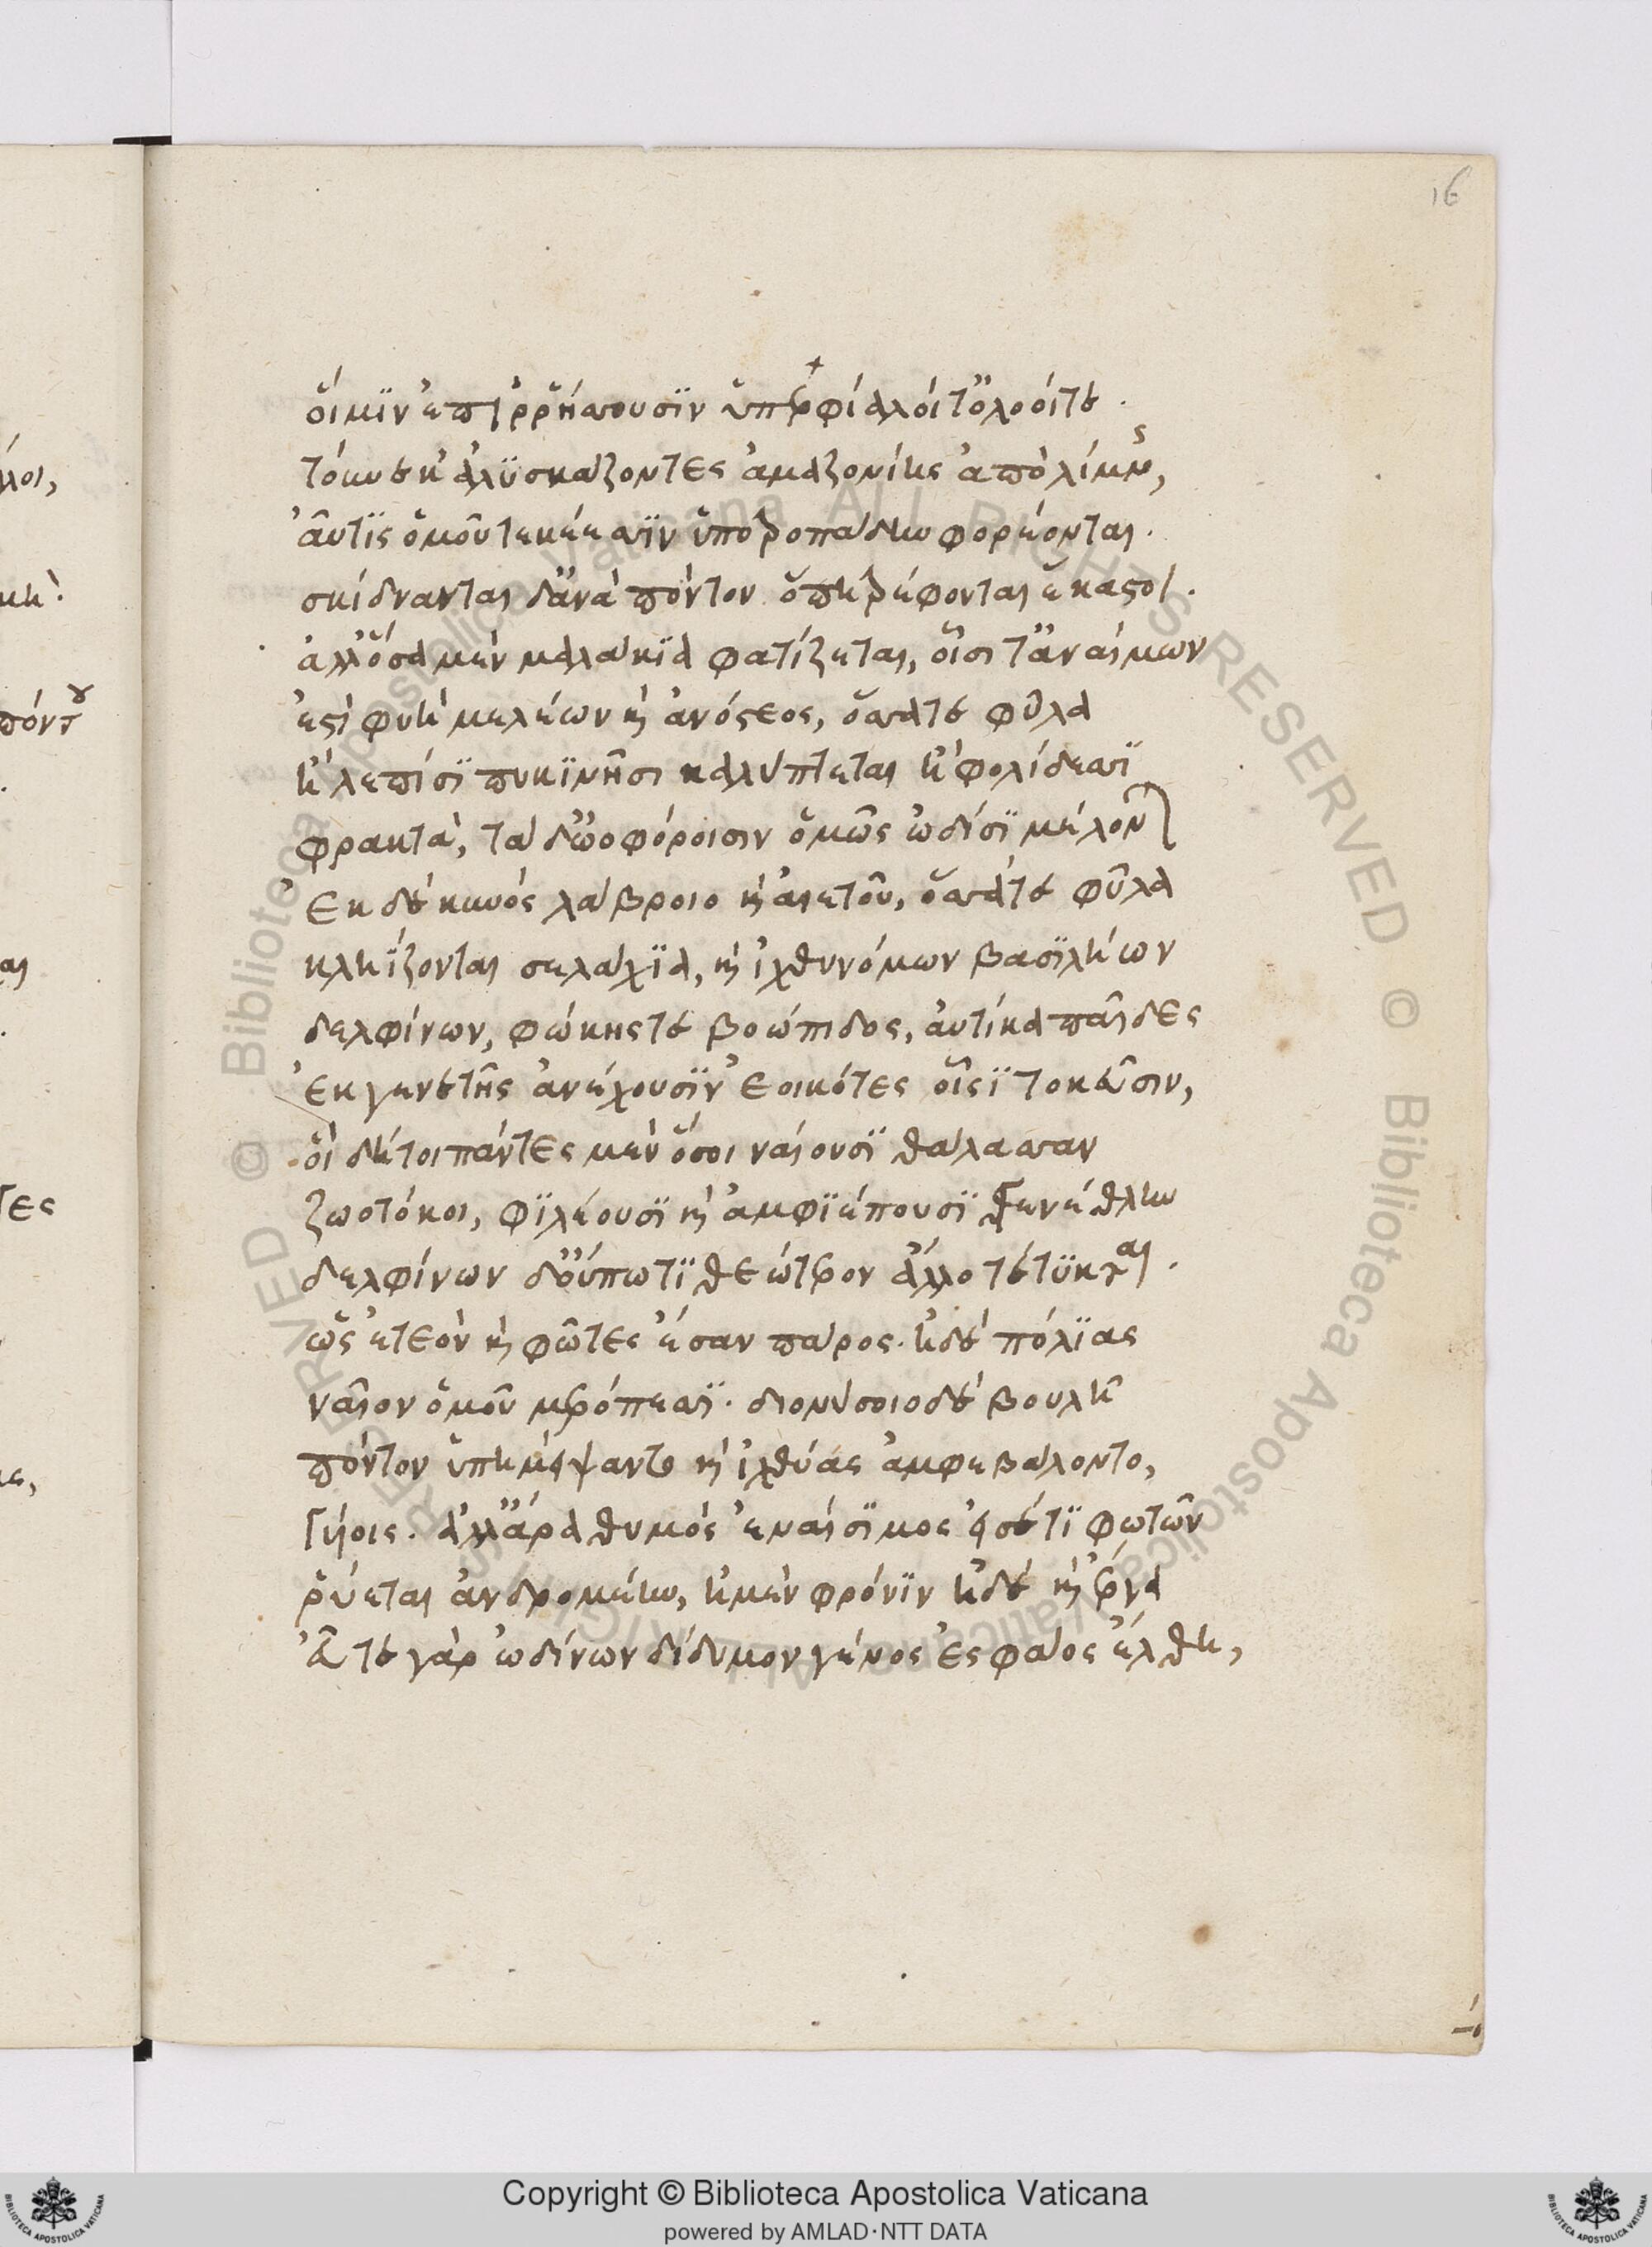 16
οἵ μιν ἐπιρρήσσουσϊν ὑπερφίαλοί τ' ὀλοοί τε.
τόυνεκ' ἀλϋσκάζοντες ἀμαζονίης ἀπὸ λίμνης,
αὖτις ὁμοῦ τεκέεσσϊν ὑποτροπάδην φορέονται.
σκίδνανται δ' ἀνὰ πόντον ὅπη τρέφονται ἕκαστοι.
ἀλλ' ὅσα μὲν μαλάκϊα φατίζεται, οἷσι τ' ἀναίμων
ἐστὶ φυὴ μελέων καὶ ἀνόστεος, ὅσσάτε φῦλα
ἢ λεπίσϊ πυκϊνῇσι καλύπτεται ἢ φολίδεσσϊ
φρακτὰ, τά δ' ὠοφόροισιν ὁμῶς ὠδίσϊ μέλον)
Ἐκ δὲ κυνὸς λάβροιο καὶ αἰετοῦ, ὅσσάτε φῦλα
κληΐζονται σελάχϊα, καὶ ἰχθυνόμων βασϊλήων
δελφίνων, φώκης τε βοώπιδος, ἀυτίκα παῖδες
ἐκ γενετῆς ἀνέχουσϊν ἐοικότες οἷσϊ τοκεῦσιν,
οἱ δή τοι πάντες μὲν ὅσοι ναίουσϊ θάλασσαν
ζωοτόκοι, φϊλέουσϊ καὶ ἀμφϊέπουσϊ γενέθλην
δελφίνων δ' οὔπω τϊ θεώτερον ἄλλο τέτϋκται.
ὡς ἐτεὸν καὶ φῶτες ἔσαν πάρος. ἠδὲ πόλϊας
ναῖον ὁμοῦ μερόπεσσϊ. διονύσοιο δὲ βουλῇ
πόντον ὑπημείψαντο καὶ ἰχθύας ἀμφεβάλοντο,
Γήοις. ἀλλ' ἄρα θυμὸς ἐναίσϊμος εἰσέτϊ φωτῶν
ῥύεται ἀνδρομέην, ἠμὲν φρόνϊν ἠδὲ καὶ ἔργα
Εὖτε γὰρ ὠδίνων δίδυμον γένος ἐς φάος ἔλθη,
Copyright © Biblioteca Apostolica Vaticana
powered by AMLAD·NTT DATA